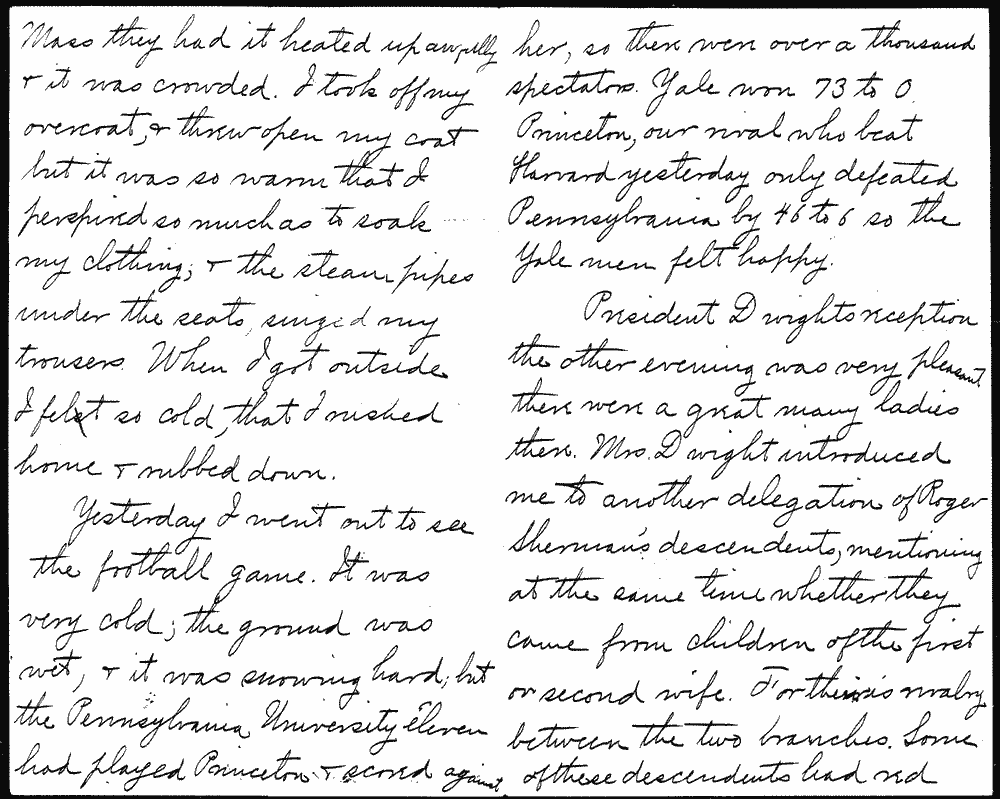 Mass they had it heated up awfully
+ it was crowded. I took off my
overcoat, + threw open my coat
but it was so warm that I
perspired so much as to soak
my clothing; + the steam pipes
under the seats, singed my
trousers. When I got outside
I felt so cold, that I rushed
home + rubbed down.
Yesterday I went out to see
the football game. It was
very cold; the ground was
wet, + it was snowing hard; but
the Pennsylvania University Eleven
had played Princeton + scored against
her, so there were over a thousand
spectators. Yale won 73 to 0.
Princeton, our rival who beat
Harvard yesterday only defeated
Pennsylvania by 46 to 6 so the
Yale men felt happy.
President Dwights reception
the other evening was very pleasant
there were a great many ladies
there. Mrs. Dwight introduced
me to another delegation of Roger
Sherman's descendents, mentioning
at the same time whether they
came from children of the first
or second wife. For there is rivalry
between the two branches. Some
of these descendents had red